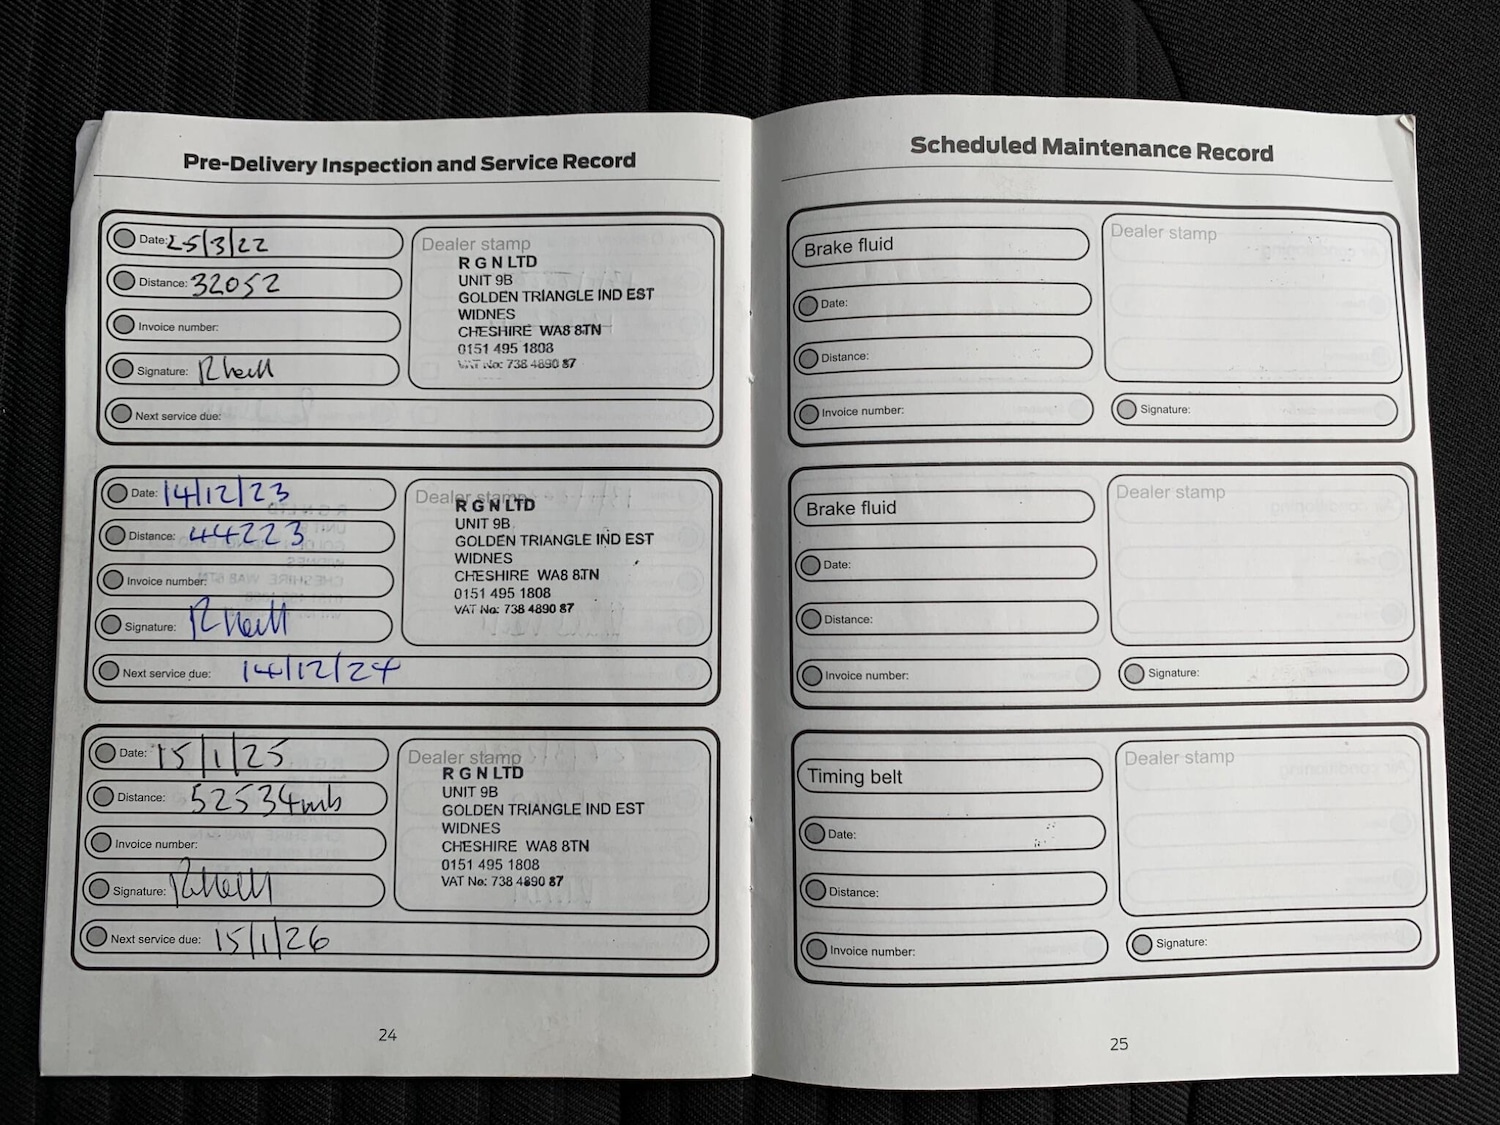 Pre-Delivery Inspection and Service Record
Date: 25/3/22
Distance: 32052
Invoice number:
Signature:
Next service due:
Dealer stamp
R G N LTD
UNIT 9B
GOLDEN TRIANGLE IND EST
WIDNES
CHESHIRE WA8 8TN
0151 495 1808
VAT No: 738 4890 87
Date: 14/12/23
Distance: 44223
Invoice number:
Signature:
Next service due: 14/12/24
Dealer stamp
R G N LTD
UNIT 9B
GOLDEN TRIANGLE IND EST
WIDNES
CHESHIRE WA8 8TN
0151 495 1808
VAT No: 738 4890 87
Date: 15/1/25
Distance: 52534
Invoice number:
Signature:
Next service due: 15/1/26
Dealer stamp
R G N LTD
UNIT 9B
GOLDEN TRIANGLE IND EST
WIDNES
CHESHIRE WA8 8TN
0151 495 1808
VAT No: 738 4890 87
24
Scheduled Maintenance Record
Brake fluid
Date:
Distance:
Invoice number:
Dealer stamp
Signature:
Brake fluid
Date:
Distance:
Invoice number:
Dealer stamp
Signature:
Timing belt
Date:
Distance:
Invoice number:
Dealer stamp
Signature:
25